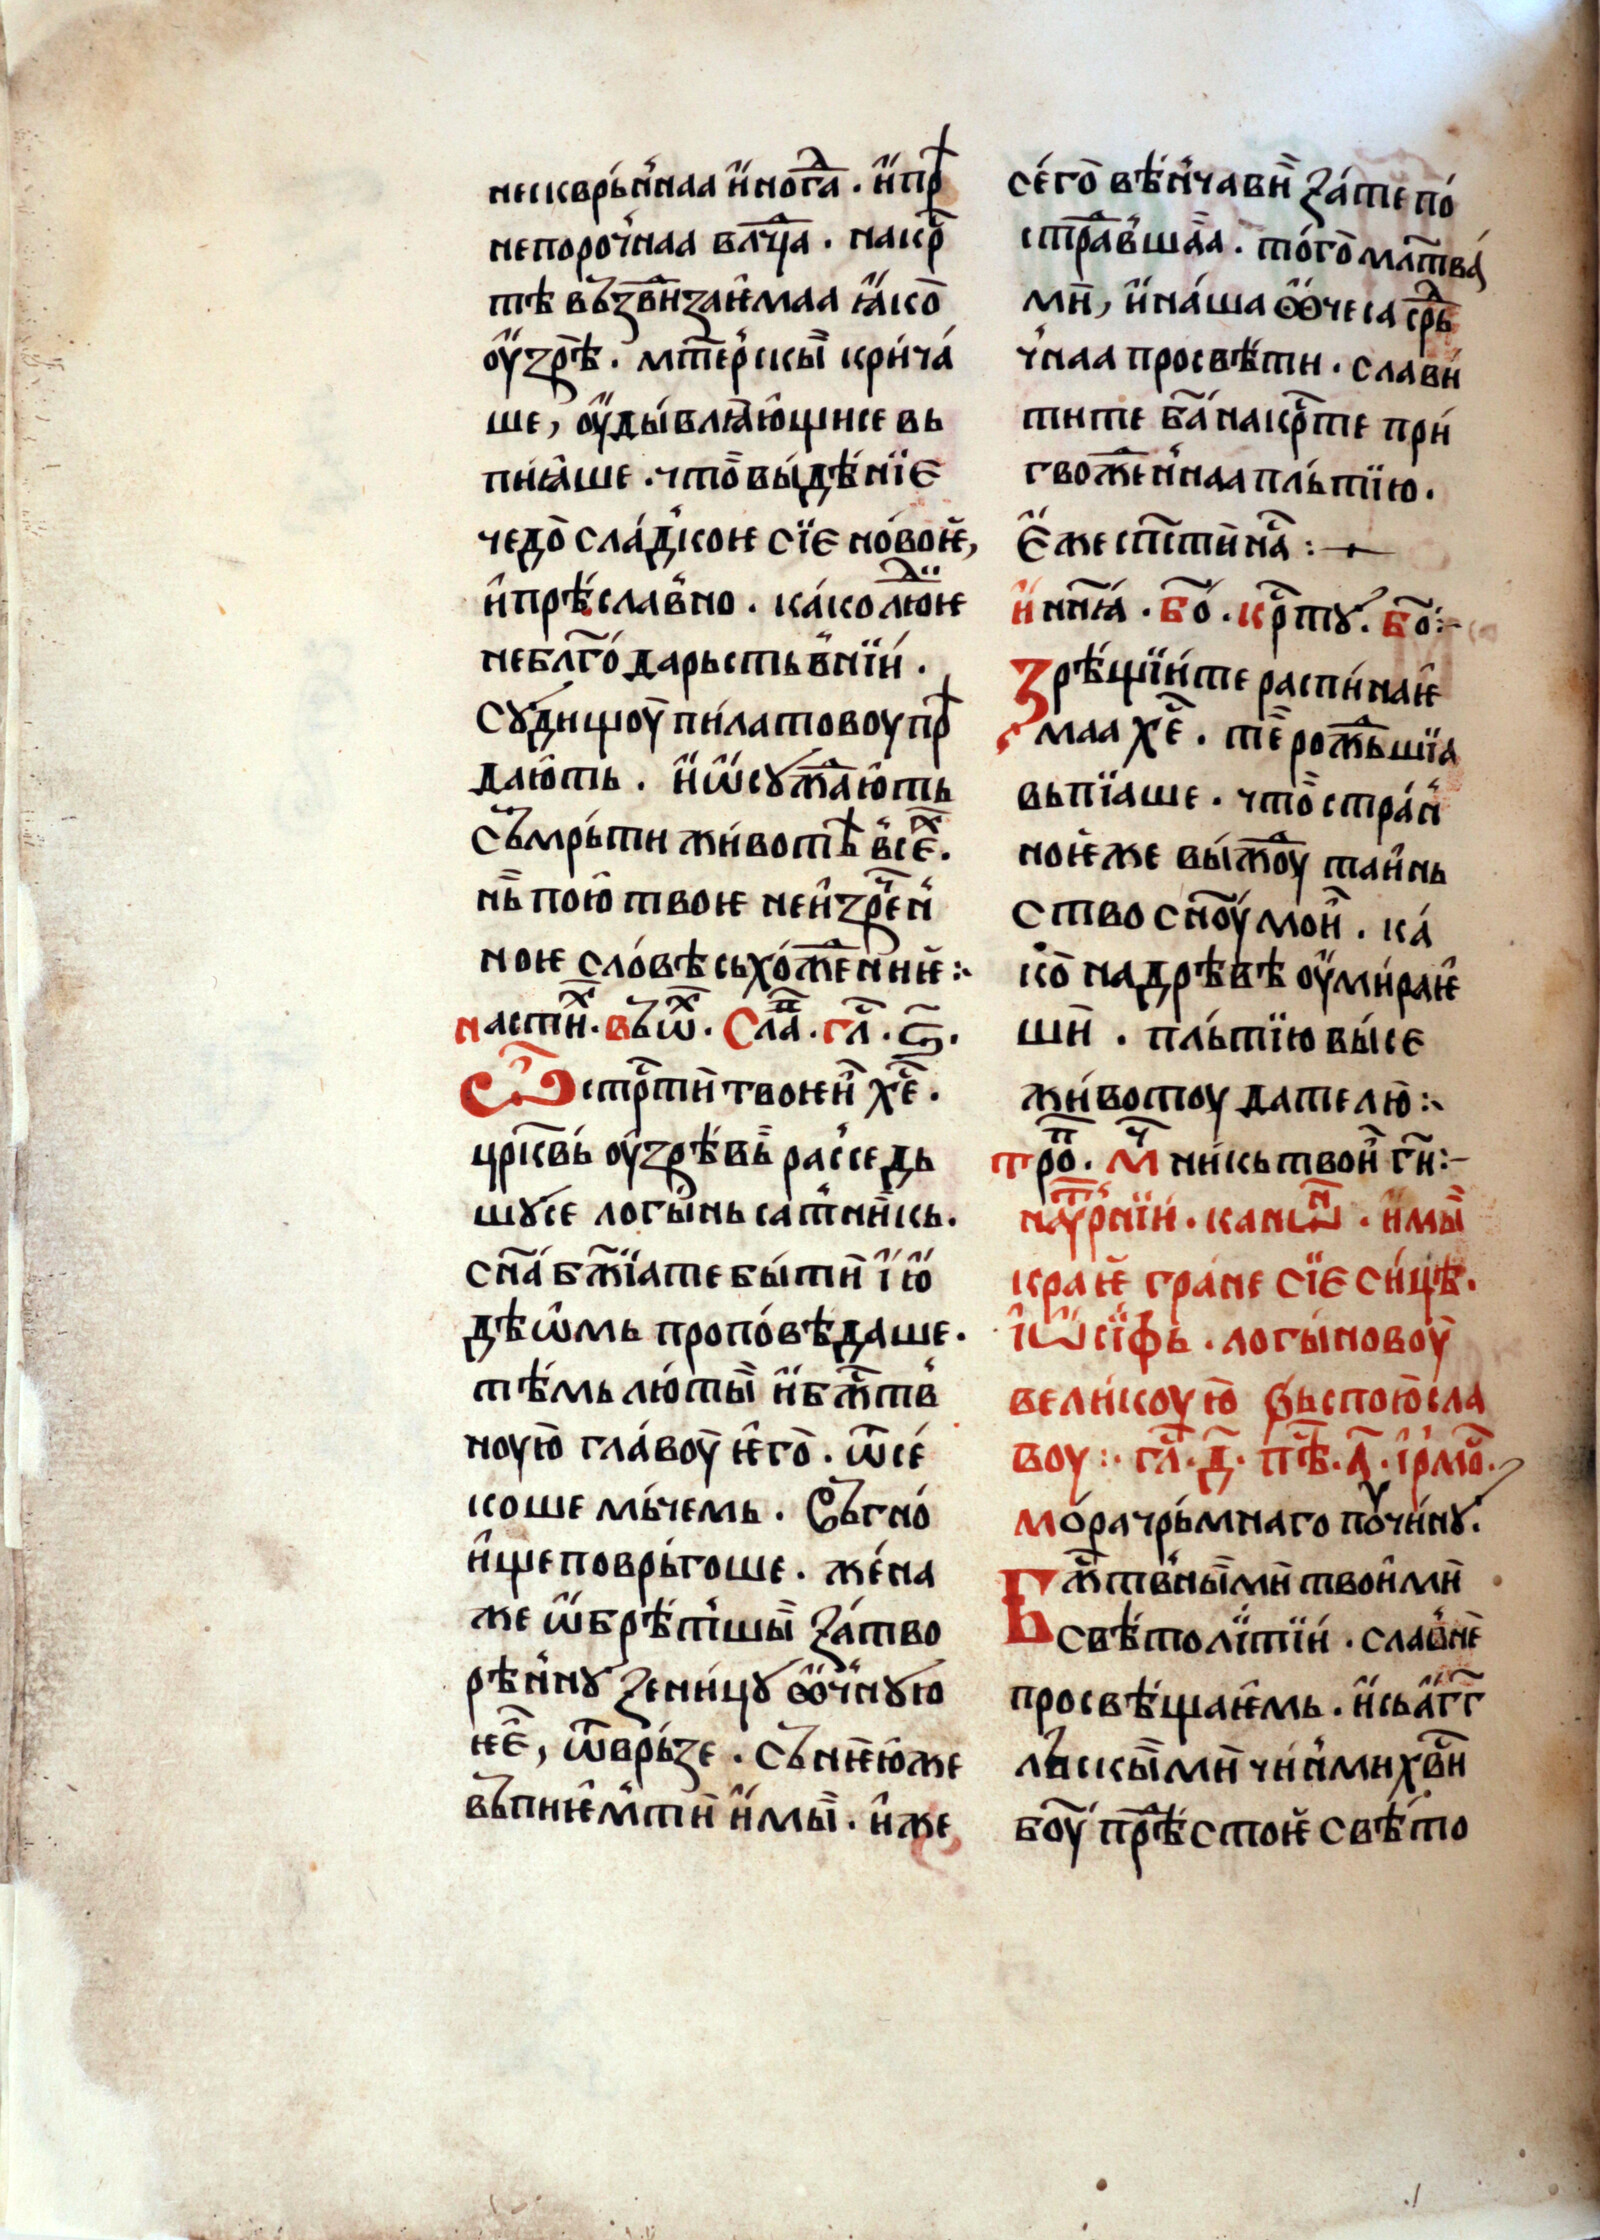 нескврь́н̏наа и̏ногда̀ · и̏пр҄ѣ
непоро́чнаа вл҃чца · накр҄
тѣ въздви́зае́маа ꙗ̏ко̀
оу̏зрѣ̀ · мт҃ерскы̀ крича́
ше, оу̏ды́влꙗю́щисе вь
пиꙗ́ше · что̀ вы́дѣ́нїѥ
чедо̀ сла́дкоѥ сїе но́воѥ,
и̏прѣ́сла́вно · ка́ко лю́дїѥ
небл҃го́дарьстьвнїи́ ·
Сꙋди́щоу̀ пи́латовоу пр҄ѣ
даю́ть · и̏ѡ̏сꙋжда́ють
съ́мрьти жи́вотѣ́ всѣ́х ·
нь̀ пою̀ твоѥ неи́зре́чен̏
ноѥ сло́вѣ сьхо́жде́ниѥ :·
настих҃ · въѡ҃х · Сла҃ · гл҃ · ѕ҃ ·
Ѡ̑ стр҃ти́ твоѥи̏ хе҃ ·
црк҃вь́ оу̏зрѣ́вь̀ ра́сседь
шꙋсе логы́нь сат̏ни́кь ·
сн҃а бж҃їа те бы́ти̏ ї̏ю̏
дѣѡ́мь пропо́вѣ́даше ·
тѣ́мь лю́ты̀ и̏бж҃тв
ноую̀ гла́воу̀ ѥго̀ · ѿсѣ́
коше мь́чемь · Съ́гно́
и̏ще по́врьгоше · же́на
же ѡ̏брѣт̏шы̀ за́тво
рѣн̏нꙋ зени́цꙋ ѻ̏ч̏нꙋю
ѥѐ, ѿврь́зе · съ́ниѥю́же
въ́пиѥ́м ти̏ и̏мы̀ · и́же
се́го̀ вѣн̏чави̏ за́те по́
стра́давша̀а · то́го̀ мл҃тва́
ми̏, и̏на́ша ѻ̏чеса ср҃дь
ч̏наа просвѣ́ти · слави́
ти́те ба҃ накр҃те при́
гвожде́н̏наа пль́тїю ·
Ѥ̏же сп҃сти̏ на́с : —
и̏нн҃ꙗ · бо҃ · кр҃тꙋ · бо҃ :-
Зрѣ́щїи́ те распи́наѥ̑
маа хе҃ · те̏ рожды́шїа
вьпїаше · что̀ стра́ш̏
ноѥже вы́ждоу таи́нь
ство сн҃оу́ мои̏ · ка́
ко̀ на дрѣ́вѣ оу̏ми́раѥ
ши̏ · пль́тїю вы́се
жи́вотоу дателю̀ :·
тро҃п · мч҃ никь твои̏ ги҃ :-
наꙋ́трнїи · канѡ́н · и̏мы̀
краѥ гра́не сїе си́цѣ ·
Їѡ́сїфь · логы́новоу̀
вели́коую̀ вьспою̀ сла
воу : гл҃ · д҃ · пѣ҃ · а҃ · ірмо҃ ·
мо́ра чрь́мнаго по́чи́нꙋ ·
Бж҃твны̀ми̏ твои́ми̏
свѣ́толи́тїи́ · слав̏не̏
просвѣ́щаѥмь · и̏сьа́гг҃
льскы̀ми̏ чи́н̏ми хва́ли
боу̀ прѣ́стоѥ свѣ́то